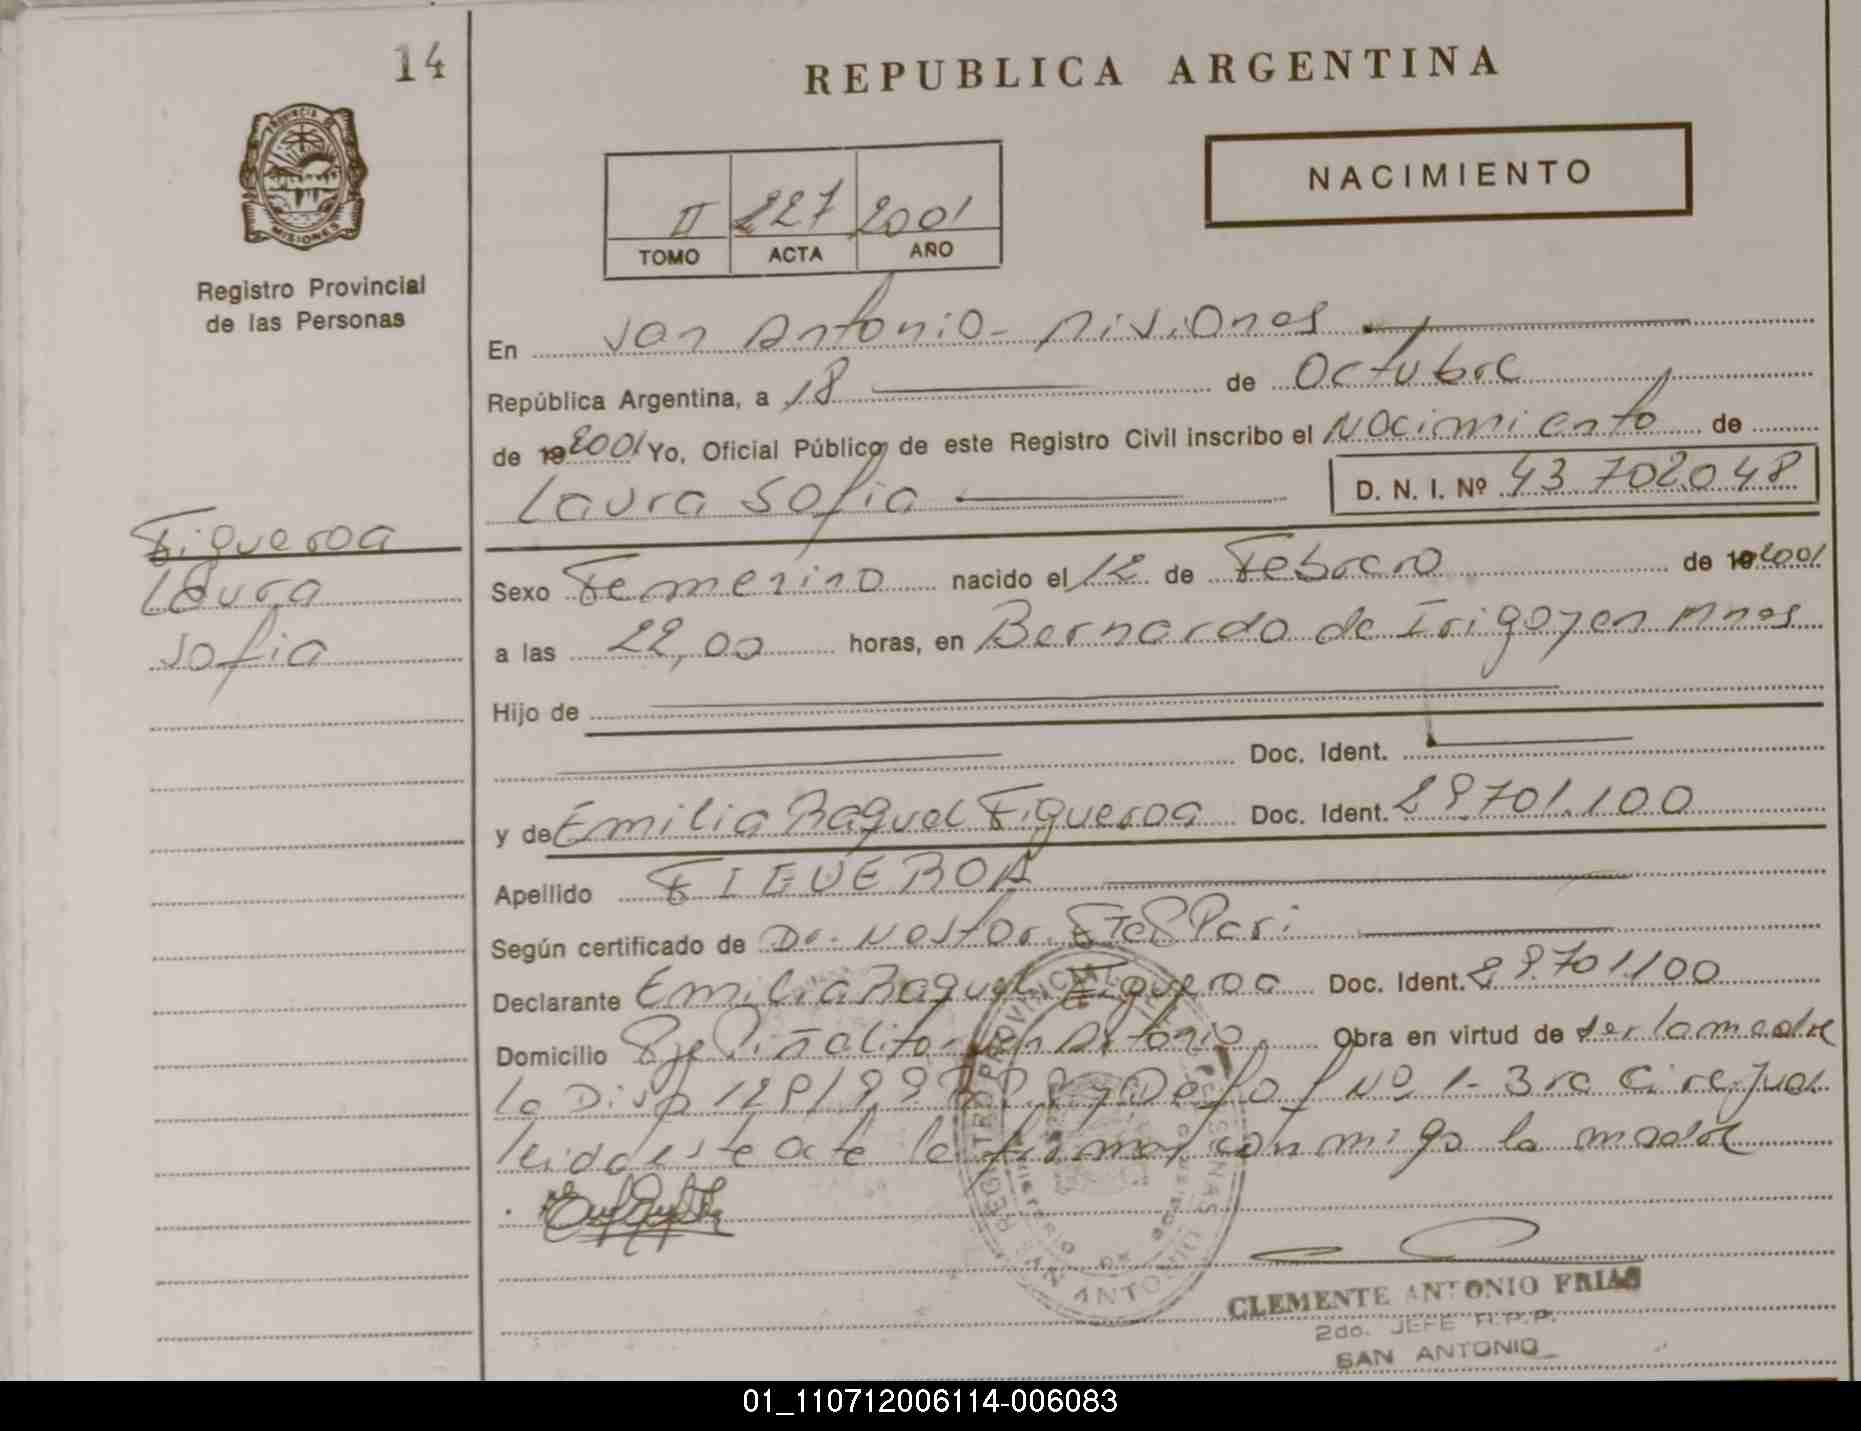 14
REPUBLICA ARGENTINA
PROVINCIA DE
MISIONES
NACIMIENTO
II 227 2001
TOMO ACTA AÑO
Registro Provincial
de las Personas
En San Antonio - Misiones
República Argentina, a 18 de Octubre
de 19 2001 Yo, Oficial Público de este Registro Civil inscribo el Nacimiento de
Laura Sofia D. N. I. Nº 43 702048
Figueroa
Laura
Sofia
Sexo Femenino nacido el 12 de Febrero de 19 2001
a las 22,00 horas, en Bernardo de Irigoyen Mnes
Hijo de
Doc. Ident.
y de Emilia Raquel Figueroa Doc. Ident. 29.701.100
Apellido FIGUEROA
Según certificado de Dr. Nestor
Declarante Emilia Raquel Figueroa Doc. Ident. 29.701.100
Domicilio Pje Piñalito San Antonio Obra en virtud de ser la madre
la Disp Nº 1 - 3ra
leida este acta la firma conmigo la madre
REGISTRO PROVINCIAL DE LAS PERSONAS
SAN ANTONIO
CLEMENTE ANTONIO FRIAS
2do. JEFE R.P.P.
SAN ANTONIO
01_110712006114-006083